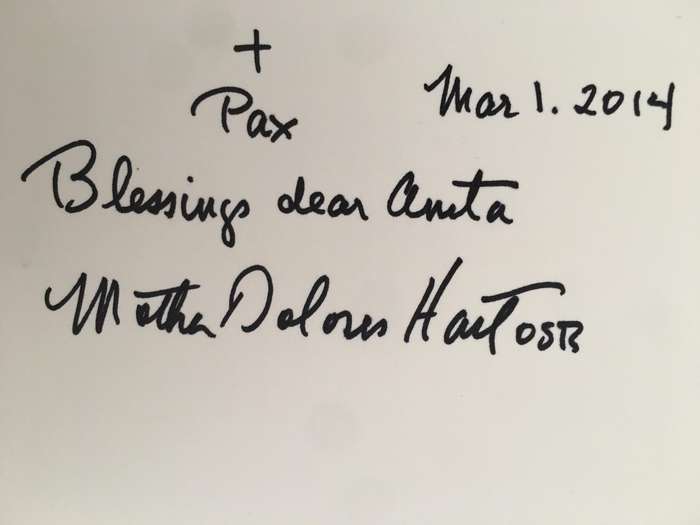 +
Pax Mar 1. 2014
Blessings dear Anita
Mother Dolores Hart OSB